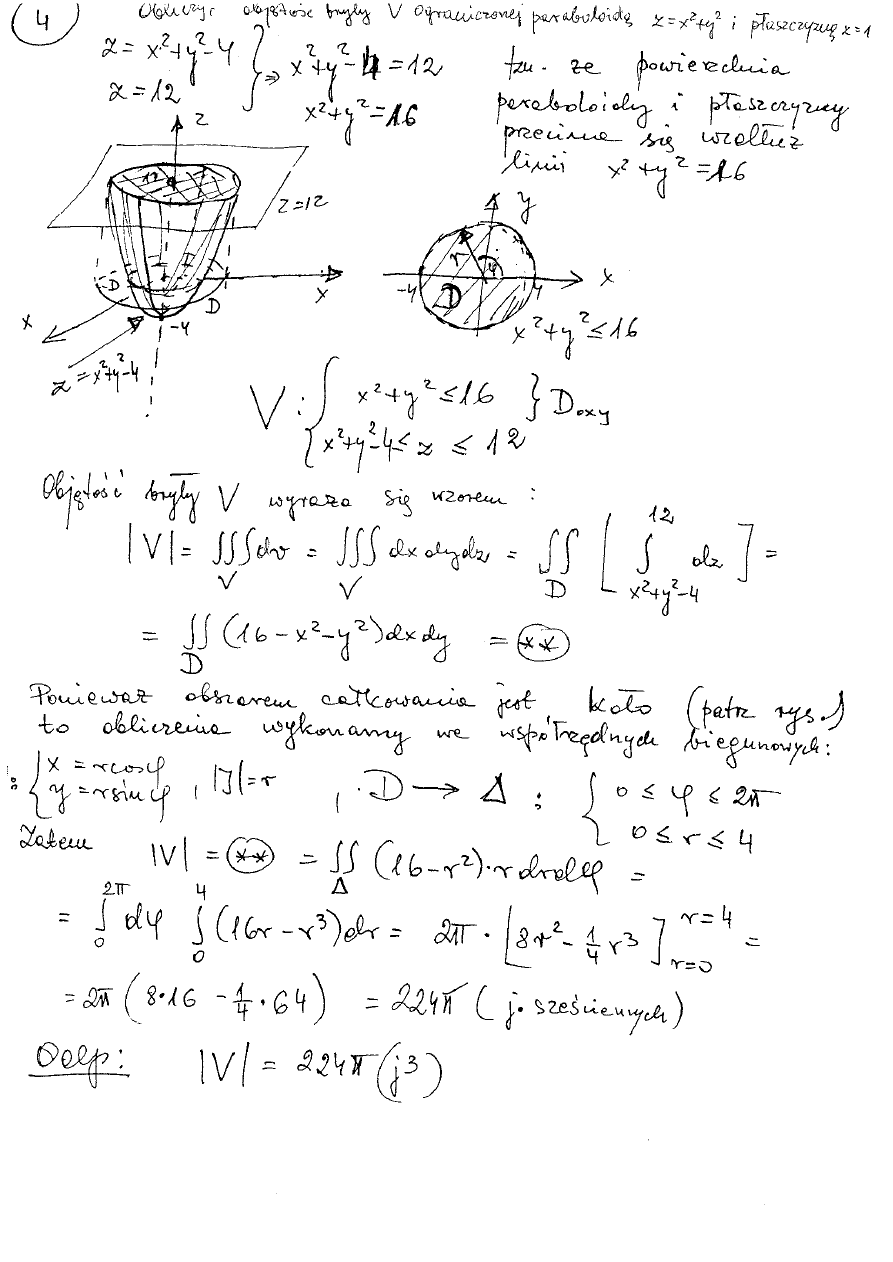 4 Obliczyć objętość bryły V ograniczonej paraboloidą z=x²+y² i płaszczyzną z=1
z = x²+y²-4
z = 12 } ⇒ x²+y²-4=12
x²+y²=16
tzn. że powierzchnia
paraboloidy i płaszczyzny
przecina się wzdłuż
linii x²+y²=16
z
12
z=12
D D
x
x
-4
z = x²+y²-4
y
r
4
-4 D 4
x
x²+y²≤16
V: { x²+y² ≤16 } D₀ₓᵧ
x²+y²-4≤ z ≤ 12
Objętość bryły V wyraża się wzorem:
|V| = ∭_V dv = ∭_V dxdydz = ∬_D [ ∫_{x²+y²-4}^{12} dz ] =
= ∬_D (16-x²-y²)dxdy = (**)
Ponieważ obszarem całkowania jest koło (patrz rys.)
to obliczenia wykonamy we współrzędnych biegunowych:
: { x = rcosφ
y = rsinφ , |J|=r , D → Δ : { 0 ≤ φ ≤ 2π
0 ≤ r ≤ 4
Zatem |V| = (**) = ∬_Δ (16-r²)·r drdφ =
= ∫_0^{2π} dφ ∫_0^4 (16r - r³)dr = 2π · [8r² - ¼r³]_{r=0}^{r=4} =
= 2π (8·16 - ¼·64) = 224π (j. sześciennych)
Odp: |V| = 224π (j³)